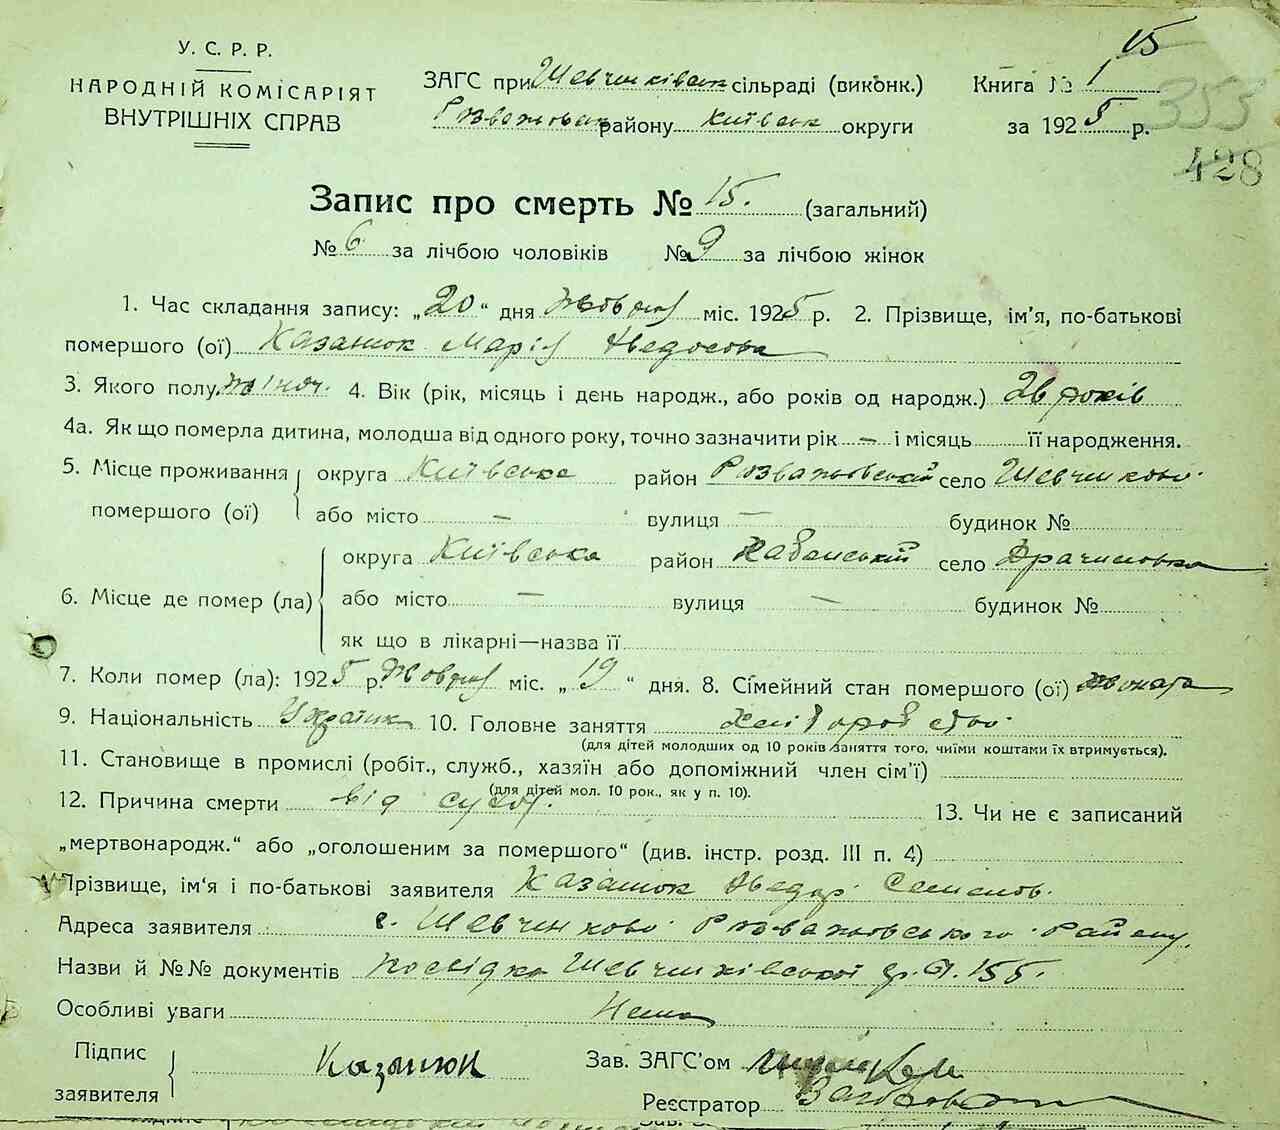 15
У. С. Р. Р.
НАРОДНІЙ КОМІСАРІЯТ
ВНУТРІШНІХ СПРАВ
ЗАГС при Шевченківськ сільраді (виконк.)
Розважівськ району Київськ округи
Книга № 1
за 1925 р.
353
428
Запис про смерть № 15. (загальний)
№ 6 за лічбою чоловіків № 9 за лічбою жінок
1. Час складання запису: „20“ дня Жовтня міс. 1925 р. 2. Прізвище, ім'я, по-батькові
помершого (ої) Казанюк Марія
3. Якого полу жіноч. 4. Вік (рік, місяць і день народж., або років од народж.) 26 років
4а. Як що померла дитина, молодша від одного року, точно зазначити рік — і місяць її народження.
5. Місце проживання помершого (ої) округа Київська район Розважівський село Шевченково
або місто — вулиця — будинок №
6. Місце де помер (ла) округа Київська район Хабенський село
або місто — вулиця — будинок №
як що в лікарні—назва її
7. Коли помер (ла): 1925 р. Жовтня міс. „19“ дня. 8. Сімейний стан помершого (ої) жоната
9. Національність Українк 10. Головне заняття Хліборобство
(для дітей молодших од 10 років заняття того, чиїми коштами їх втримується).
11. Становище в промислі (робіт., служб., хазяїн або допоміжний член сім'ї)
(для дітей мол. 10 рок., як у п. 10).
12. Причина смерти від 13. Чи не є записаний
„мертвонародж.“ або „оголошеним за помершого“ (див. інстр. розд. III п. 4)
Прізвище, ім'я і по-батькові заявителя Казанюк Семенов.
Адреса заявителя с. Шевченково Розважівського Району
Назви й №№ документів Посвідка Шевченківської 155.
Особливі уваги Нема
Підпис заявителя Казанюк
Зав. ЗАГС'ом
Реєстратор